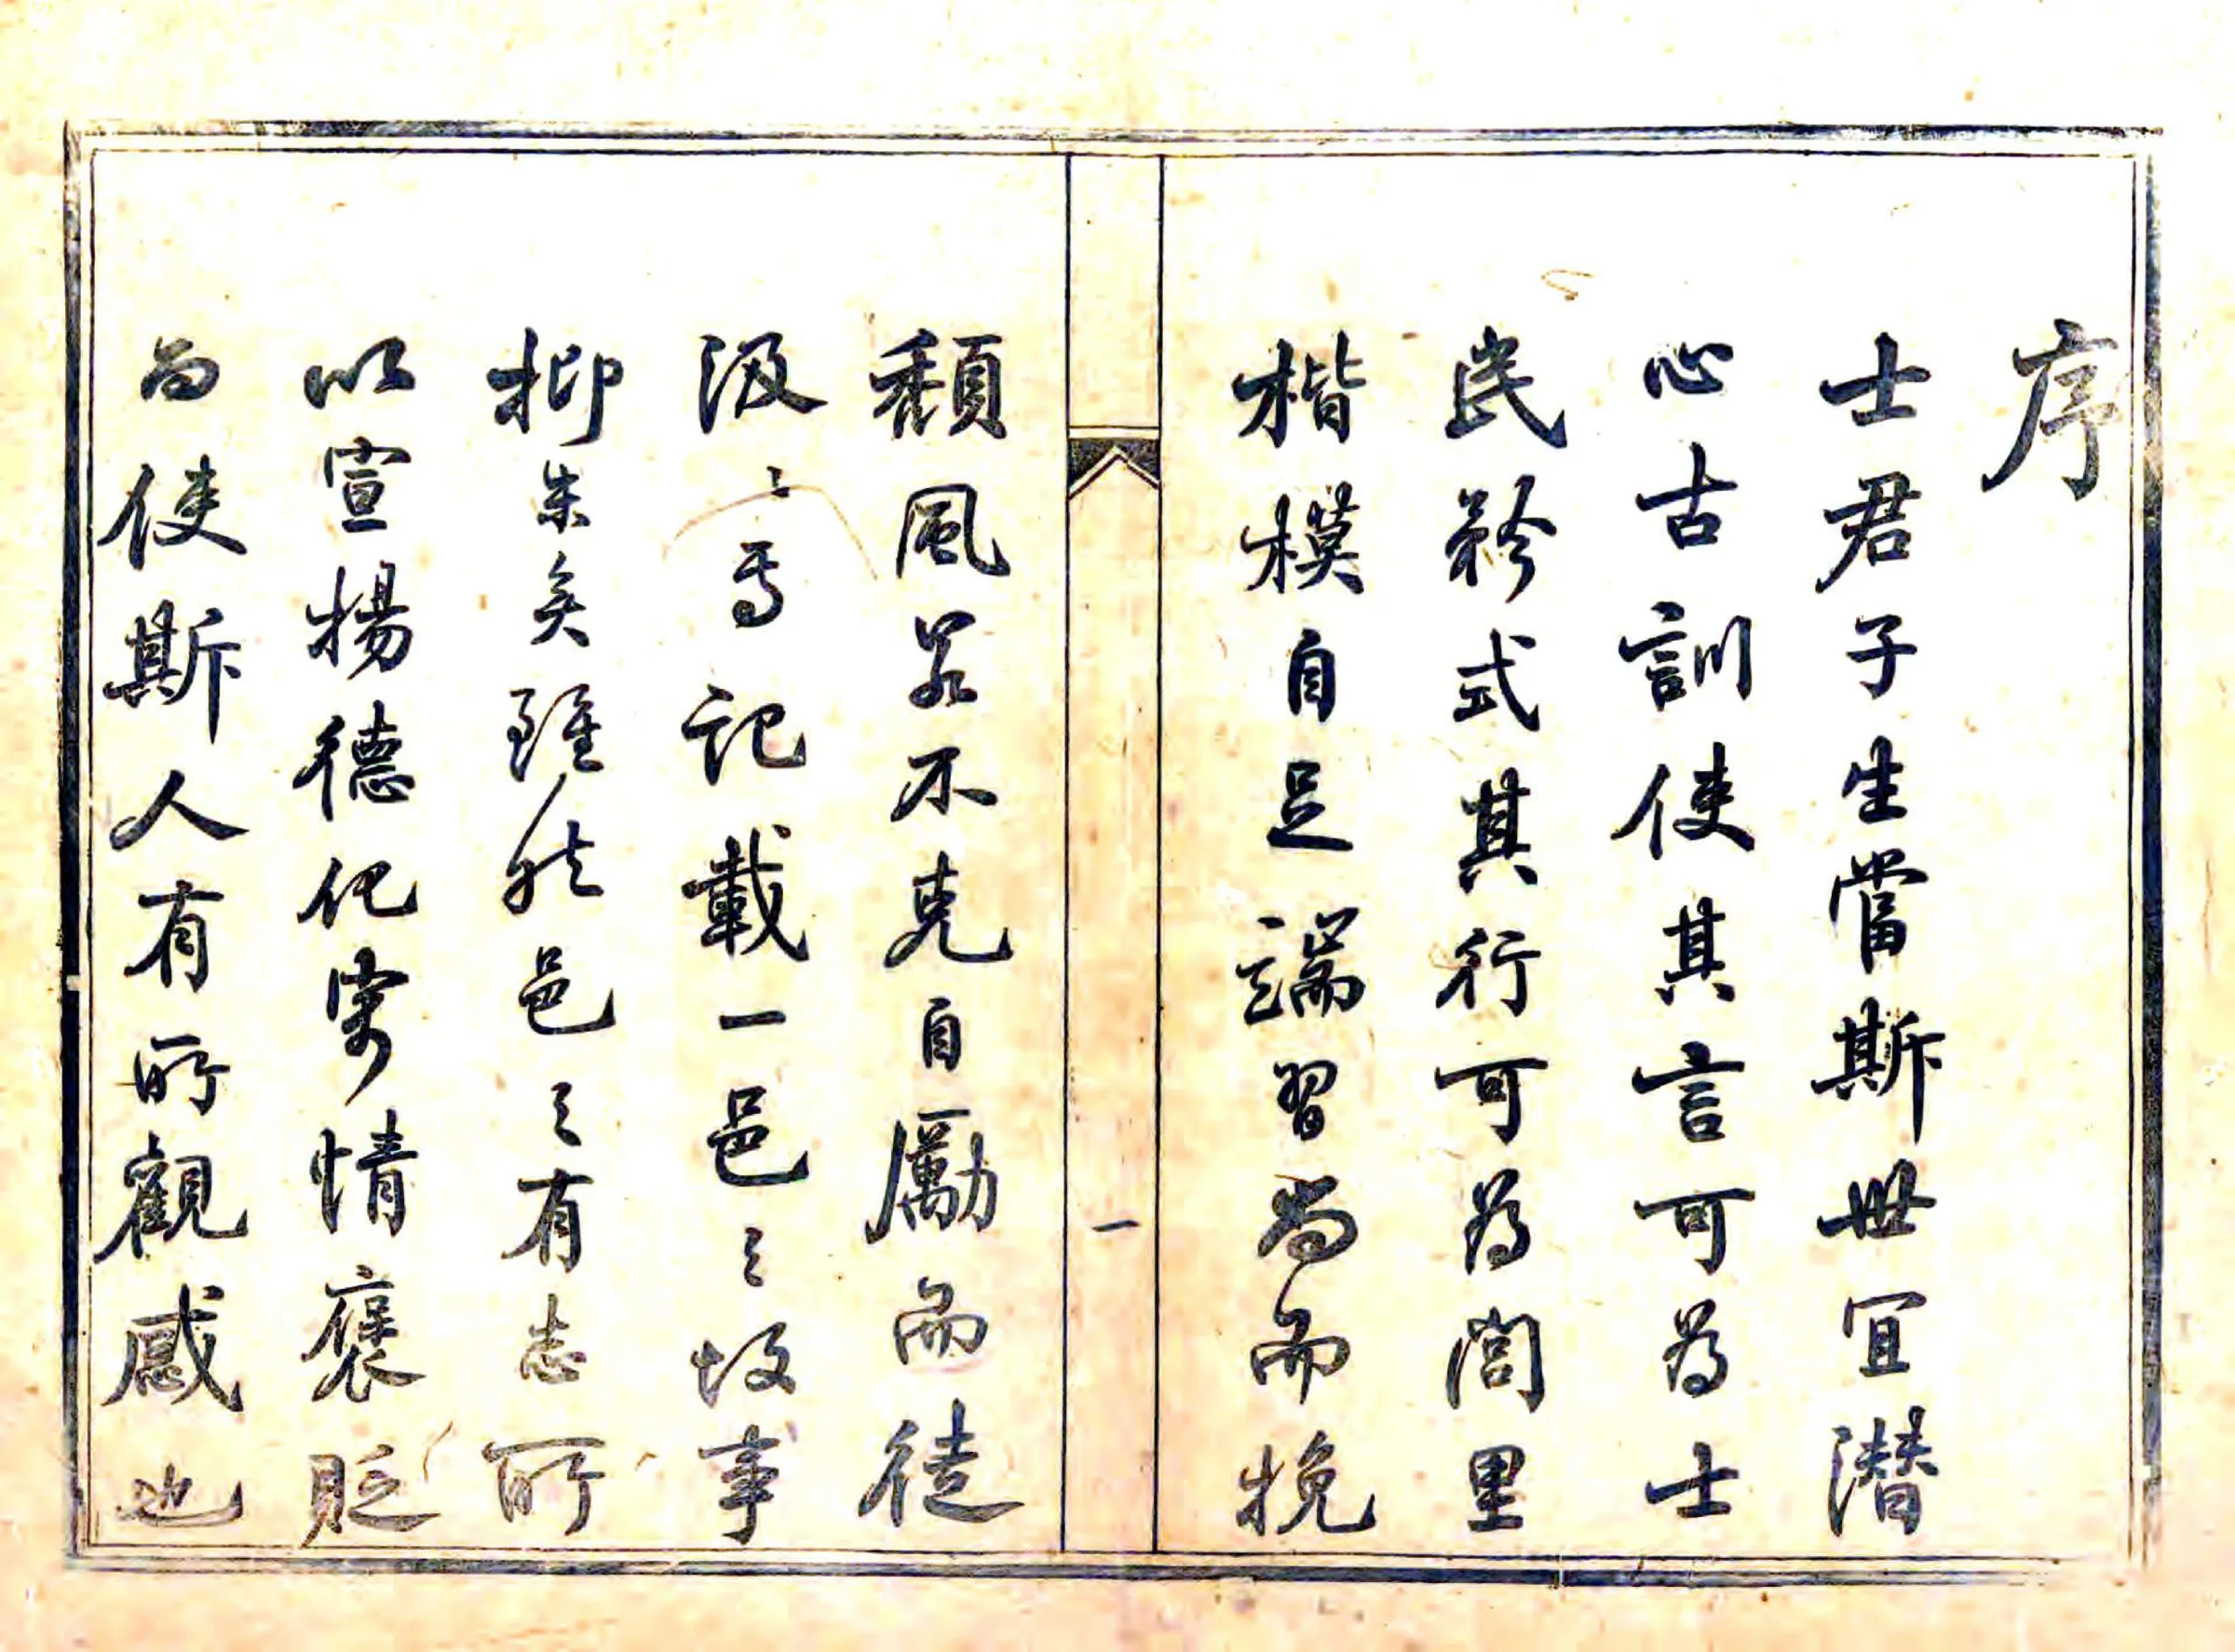 序
士君子生當斯世宜潛
心古訓使其言可為士
民矜式其行可為閭里
楷模自足端習尚而挽
一
頹風若不克自勵而徒
汲汲焉記載一邑之故事
抑末矣雖然邑之有志所
以宣揚德化寄情褒貶
而使斯人有所觀感也